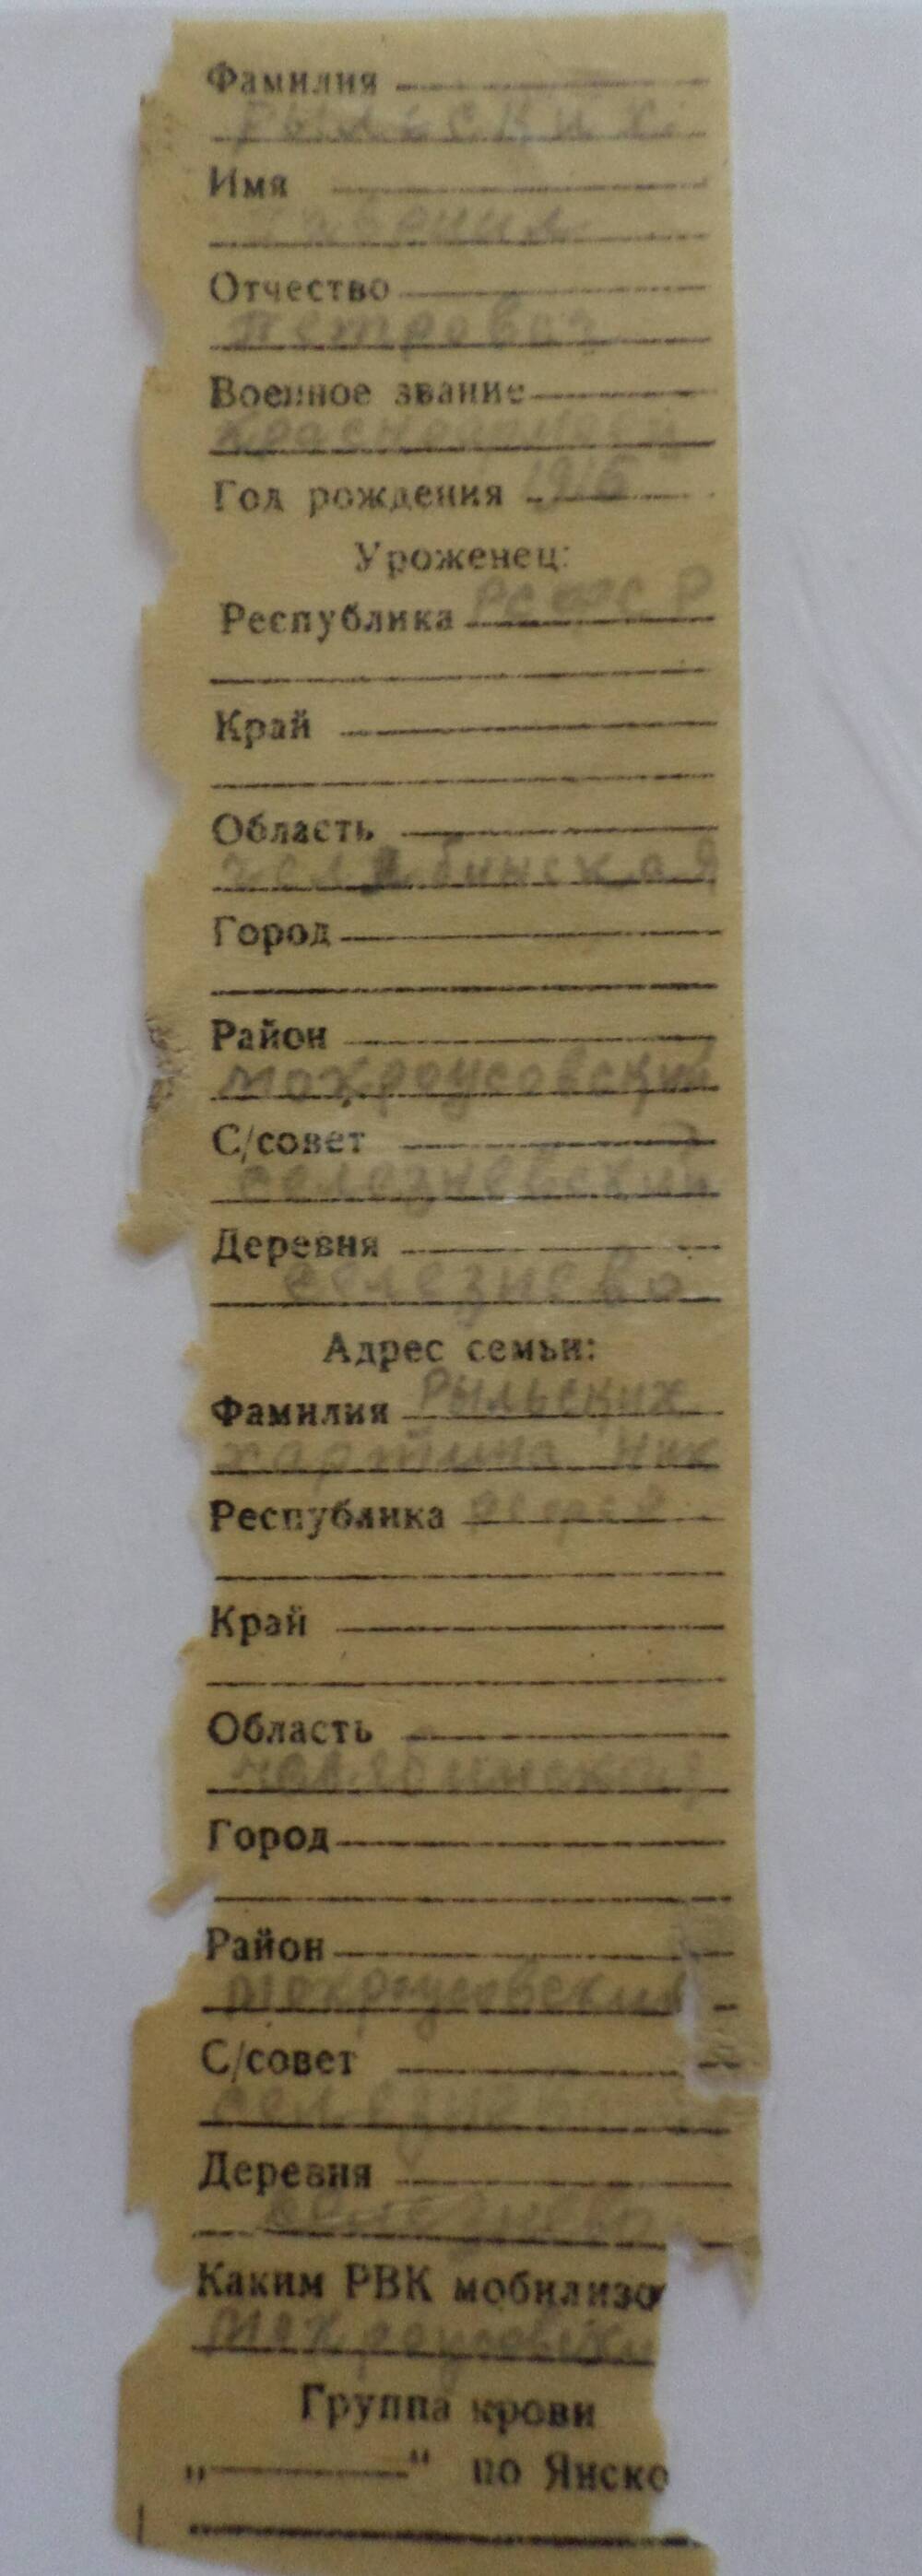 Фамилия
Рыльских
Имя
Гавриил
Отчество
петрович
Военное звание
красноармеец
Год рождения 1916
Уроженец:
Республика РСФСР
Край
Область
челябинская
Город
Район
мокроусовский
С/совет
селезневский
Деревня
селезнево
Адрес семьи:
Фамилия Рыльских
Ник
Республика РСФСР
Край
Область
челябинская
Город
Район
мокроусовский
С/совет
селезнево
Деревня
селезнево
Каким РВК мобилизо
мокроусовски
Группа крови
„ “ по Янско